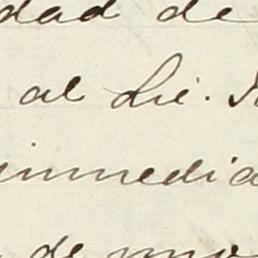 dad de
al Lic.
inmedia
de